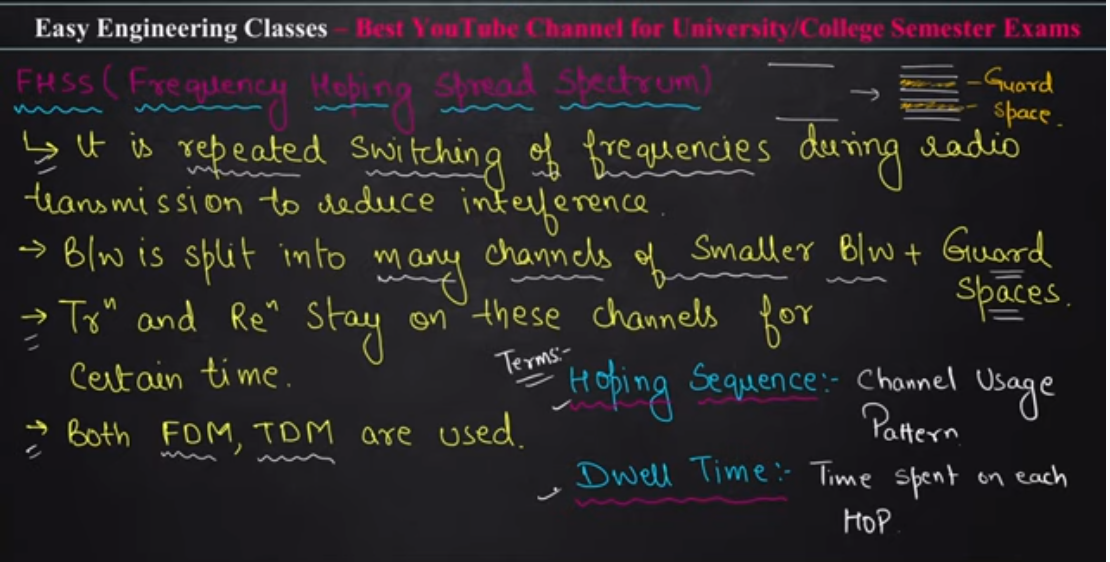 Easy Engineering Classes – Best YouTube Channel for University/College Semester Exams
FHSS (Frequency Hoping Spread Spectrum)
→ - Guard
space.
↳ It is repeated switching of frequencies during radio
transmission to reduce interference.
→ B/w is split into many channels of Smaller B/w + Guard
Spaces.
→ Trⁿ and Reⁿ Stay on these channels for
Certain time.
→ Both FDM, TDM are used.
Terms:-
Hoping Sequence:- Channel Usage
Pattern.
Dwell Time:- Time spent on each
HOP.